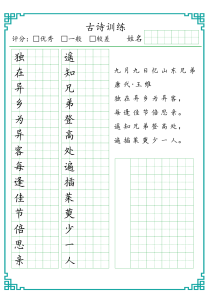 古诗训练
评分：□优秀 □一般 □较差 姓名
独在异乡为异客每逢佳节倍思亲
遥知兄弟登高处遍插茱萸少一人
九月九日忆山东兄弟
唐代·王维
独在异乡为异客，
每逢佳节倍思亲。
遥知兄弟登高处，
遍插茱萸少一人。